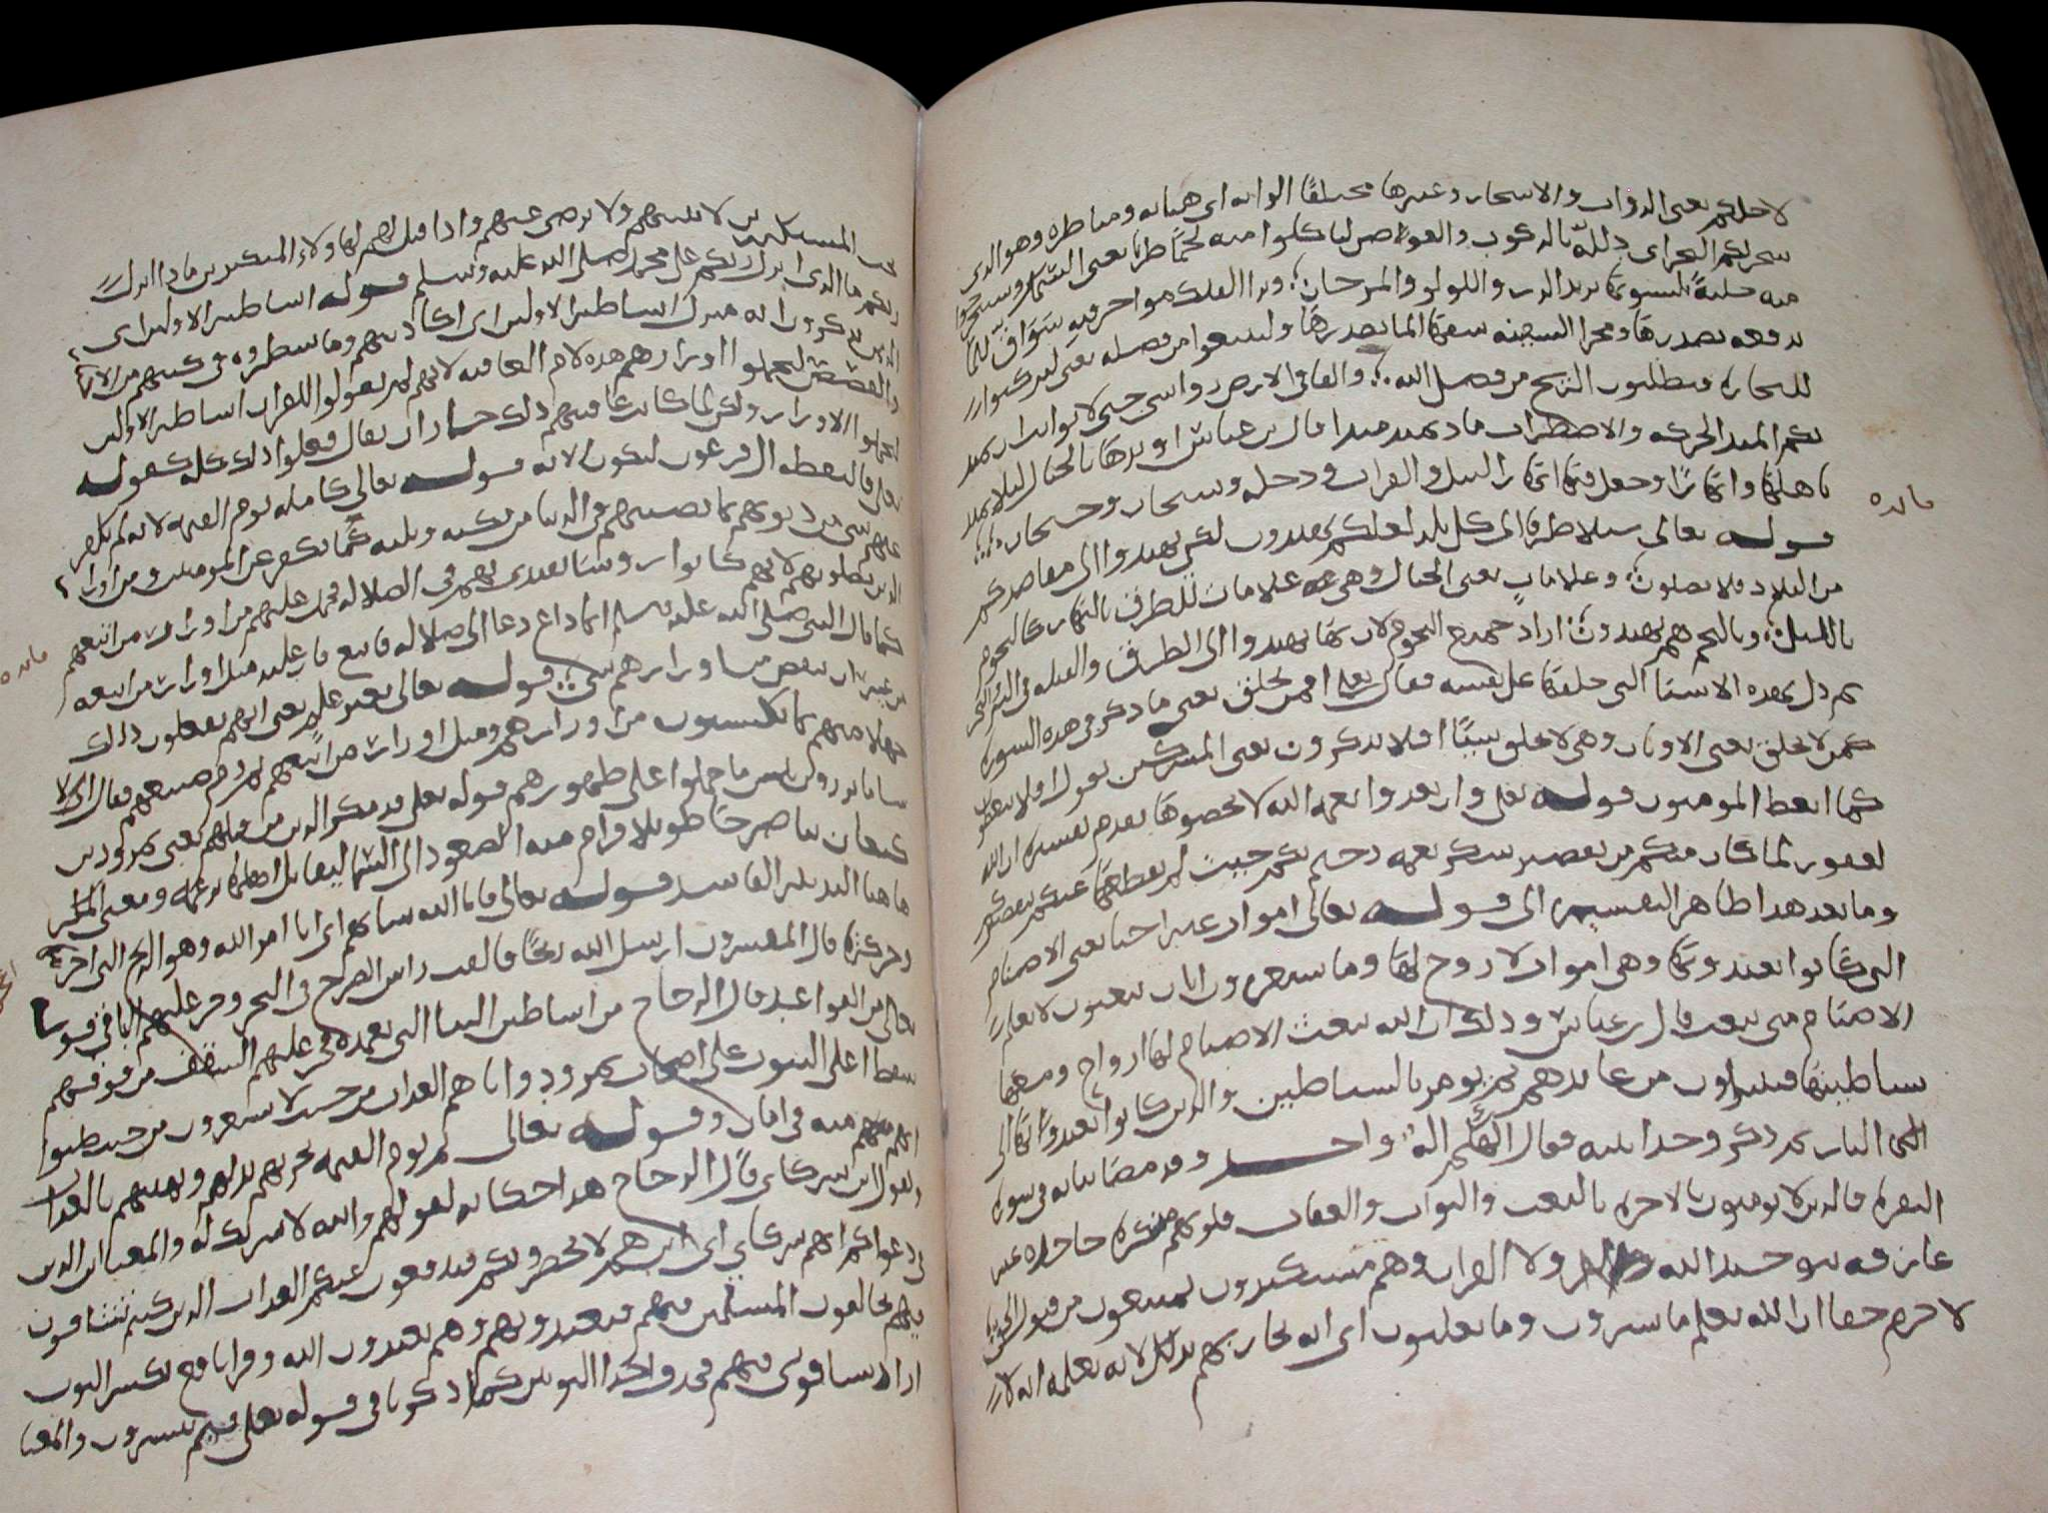 لاجلكم يعني الدواب والاشجار وغيرها مختلفا الوانه اى هياته ومناظره وهو الذى
سخر لكم البحر اى ذلله بالركوب والغوص لتاكلوا منه لحمًا طريا يعنى السمك وتستخرجوا
منه حليةً تلبسونها يريد الدر واللولو والمرجان وترا الفلك مواخر فيه سَوَاق للما
تدفعه بصدرها ومخر السفينه شقها الما بصدرها ولتبتغوا من فضله يعنى لتركبوا
للتجاره فتطلبون الربح من فضل الله والقا فى الارض رواسى جبالا ثوابت ان تميد
بكم الميد الحركه والاضطراب ماد يميد ميدا قال بن عباس اوتدها بالجبال ليلا تميد
باهلها وانهارًا وجعل فيها انهارا النيل والفرات ودجله وسيحان وجيحان
قوله تعالى سبلا طرقا الى كل بلد لعلكم تهتدون لكى تهتدوا الى مقاصدكم
من البلاد فلا تضلون وعلاماتٍ يعنى الجبال وهى علامات للطرق بالنهار كالنجوم
بالليل وبالنجم هم يهتدون اراد جميع النجوم لان بها يهتدوا الى الطرق والقبله فى البر والبحر
ثم دل بهذه الاشيا التى خلقها على نفسه فقال تعلى افمن يخلق يعنى ما ذكر فى هذه السوره
كمن لا يخلق يعنى الاوثان وهى لا تخلق شيًا افلا تذكرون يعنى المشركين يقول افلا تتعظون
كما اتعظ المومنون قوله تعلى وان تعدوا نعمة الله لا تحصوها تقدم تفسيره ان الله
لغفور لما كان منكم من تقصير شكر نعمه رحيم بكم حيث لم يقطعها عنكم بتقصيركم
وما بعد هذا ظاهر التفسير الى قوله تعالى اموات غير احيا يعنى الاصنام
التى كانوا يعبدونها وهى اموات لا روح لها وما يشعرون ايان يبعثون لا تعلم
الاصنام متى تبعث قال بن عباس وذلك ان الله يبعث الاصنام لها ارواح ومعها
شياطينها فيتبراون من عابدهم ثم يومر بالشياطين والذين كانوا يعبدونها الى
النار ثم ذكر وحدانيته فقال الهكم اله واحد وقد مضا بيانه فى سورة
البقره فالذين لا يومنون بالاخره بالبعث والثواب والعقاب قلوبهم منكره جاحده غير
عارفه بتوحيد الله ولا القران وهم مستكبرون ممتنعون من قبول الحق
لا جرم حقا ان الله يعلم ما يسرون وما يعلنون اى انه يجازيهم بذلك لانه يعلمه انه لا
مايده
يحب المستكبرين لا يثيبهم ولا يرضى عنهم واذا قيل لهم لهاولاء المنكرين ماذا انزل
ربكم ما الذى انزل ربكم على محمد صلى الله عليه وسلم قوله اساطير الاولين اى
الذين تذكرون انه منزل اساطير الاولين اى اكاذيبهم وما سطروه فى كتبهم من الاخبار
والقصص ليحملوا اوزارهم هذه لام العاقبه لانهم لم يقولوا للقران اساطير الاولين
ليحملوا الاوزار ولكن لما كان عاقبتهم ذلك جاز ان يقال فعلوا ذلك كله كقوله
تعلى فالتقطه ال فرعون ليكون لانه قوله تعالى كامله يوم القيمه لانه لم يكفر
عنهم شى من ذنوبهم بما يصيبهم فى الدنيا من نكبه وبليه كما يكفر عن المومنين ومن اوزار
الذين يضلونهم لانهم كانوا روسَا يقتدى بهم فى الضلاله فحمل عليهم من اوزار من اتبعهم
كما قال النبى صلى الله عليه وسلم ايما داع دعا الى ضلاله فاتبع فان عليه مثل اوزار من اتبعه
من غير ان ينقص من اوزارهم شى قوله تعالى بغير علم يعنى انهم يفعلون ذلك
جهلا منهم بما يكتسبون من اوزارهم ومثل اوزار من اتبعهم ثم ذم صنيعهم فقال الا
سا ما يزرون ليس ما حملوا على ظهورهم قوله تعلى قد مكر الذين من قبلهم يعنى نمرود بن
كنعان بنا صرحَا طويلا ورام منه الصعود الى السما ليقاتل اهلها بزعمه ومعنى المكر
هاهنا التدبير الفاسد قوله تعالى فاتا الله بنيانهم اى اتا امر الله وهو الريح التى اخربته
وحركته قال المفسرون ارسل الله ريحًا فالقت راس الصرح فى البحر وخر عليهم الباقى قوله
تعالى من القواعد قال الزجاج من اساطين البنا التى تعمده فخر عليهم السقف من فوقهم
سقط اعلى البيوت على اصحاب نمرود واتاهم العذاب من حيث لا يشعرون من حيث ظنوا
انهم منه فى امان وقوله تعالى ثم يوم القيمه يخزيهم يذلهم ويهينهم بالعذاب
ويقول اين شركاى قال الزجاج هذا حكايه لقولهم والله لا شريك له والمعنا اين الذين
فى دعواكم انهم شركاى اى اين هم لا يحضرونكم فيدفعون عنكم العذاب الذين كنتم تشاقون
فيهم تخالفون المسلمين فيهم فتعبدونهم وهم يعبدون الله وقرا نافع بكسر النون
اراد تشاقونى فيهم فحذف احدا النونين كما ذكرنا فى قوله تعلى فبم تبشرون والمعنا
مايده